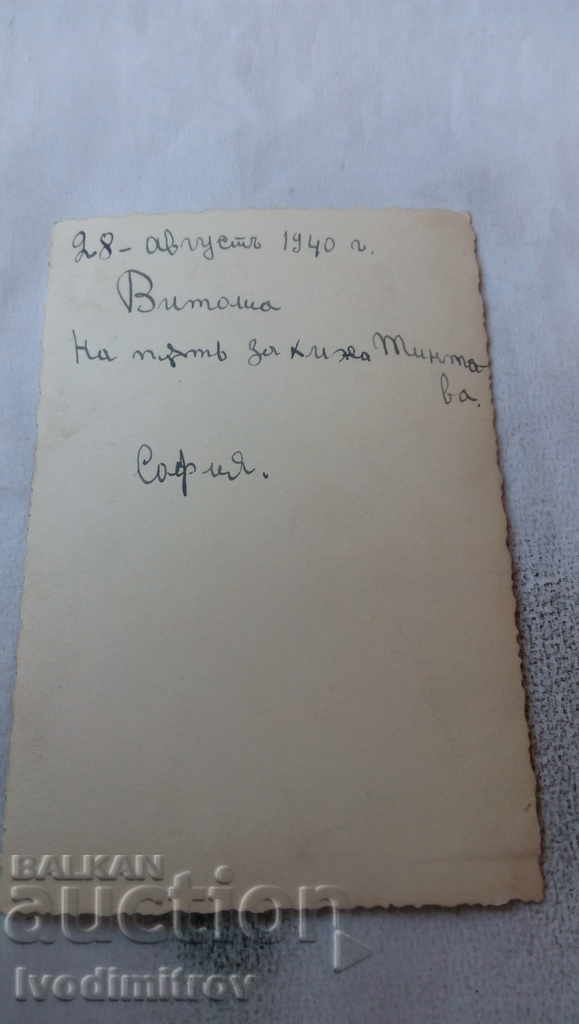 28 - августъ 1940 г.
Витоша
На пѫть за хижа Тинтя-
ва.
София.
BALKAN
auction
Ivodimitrov